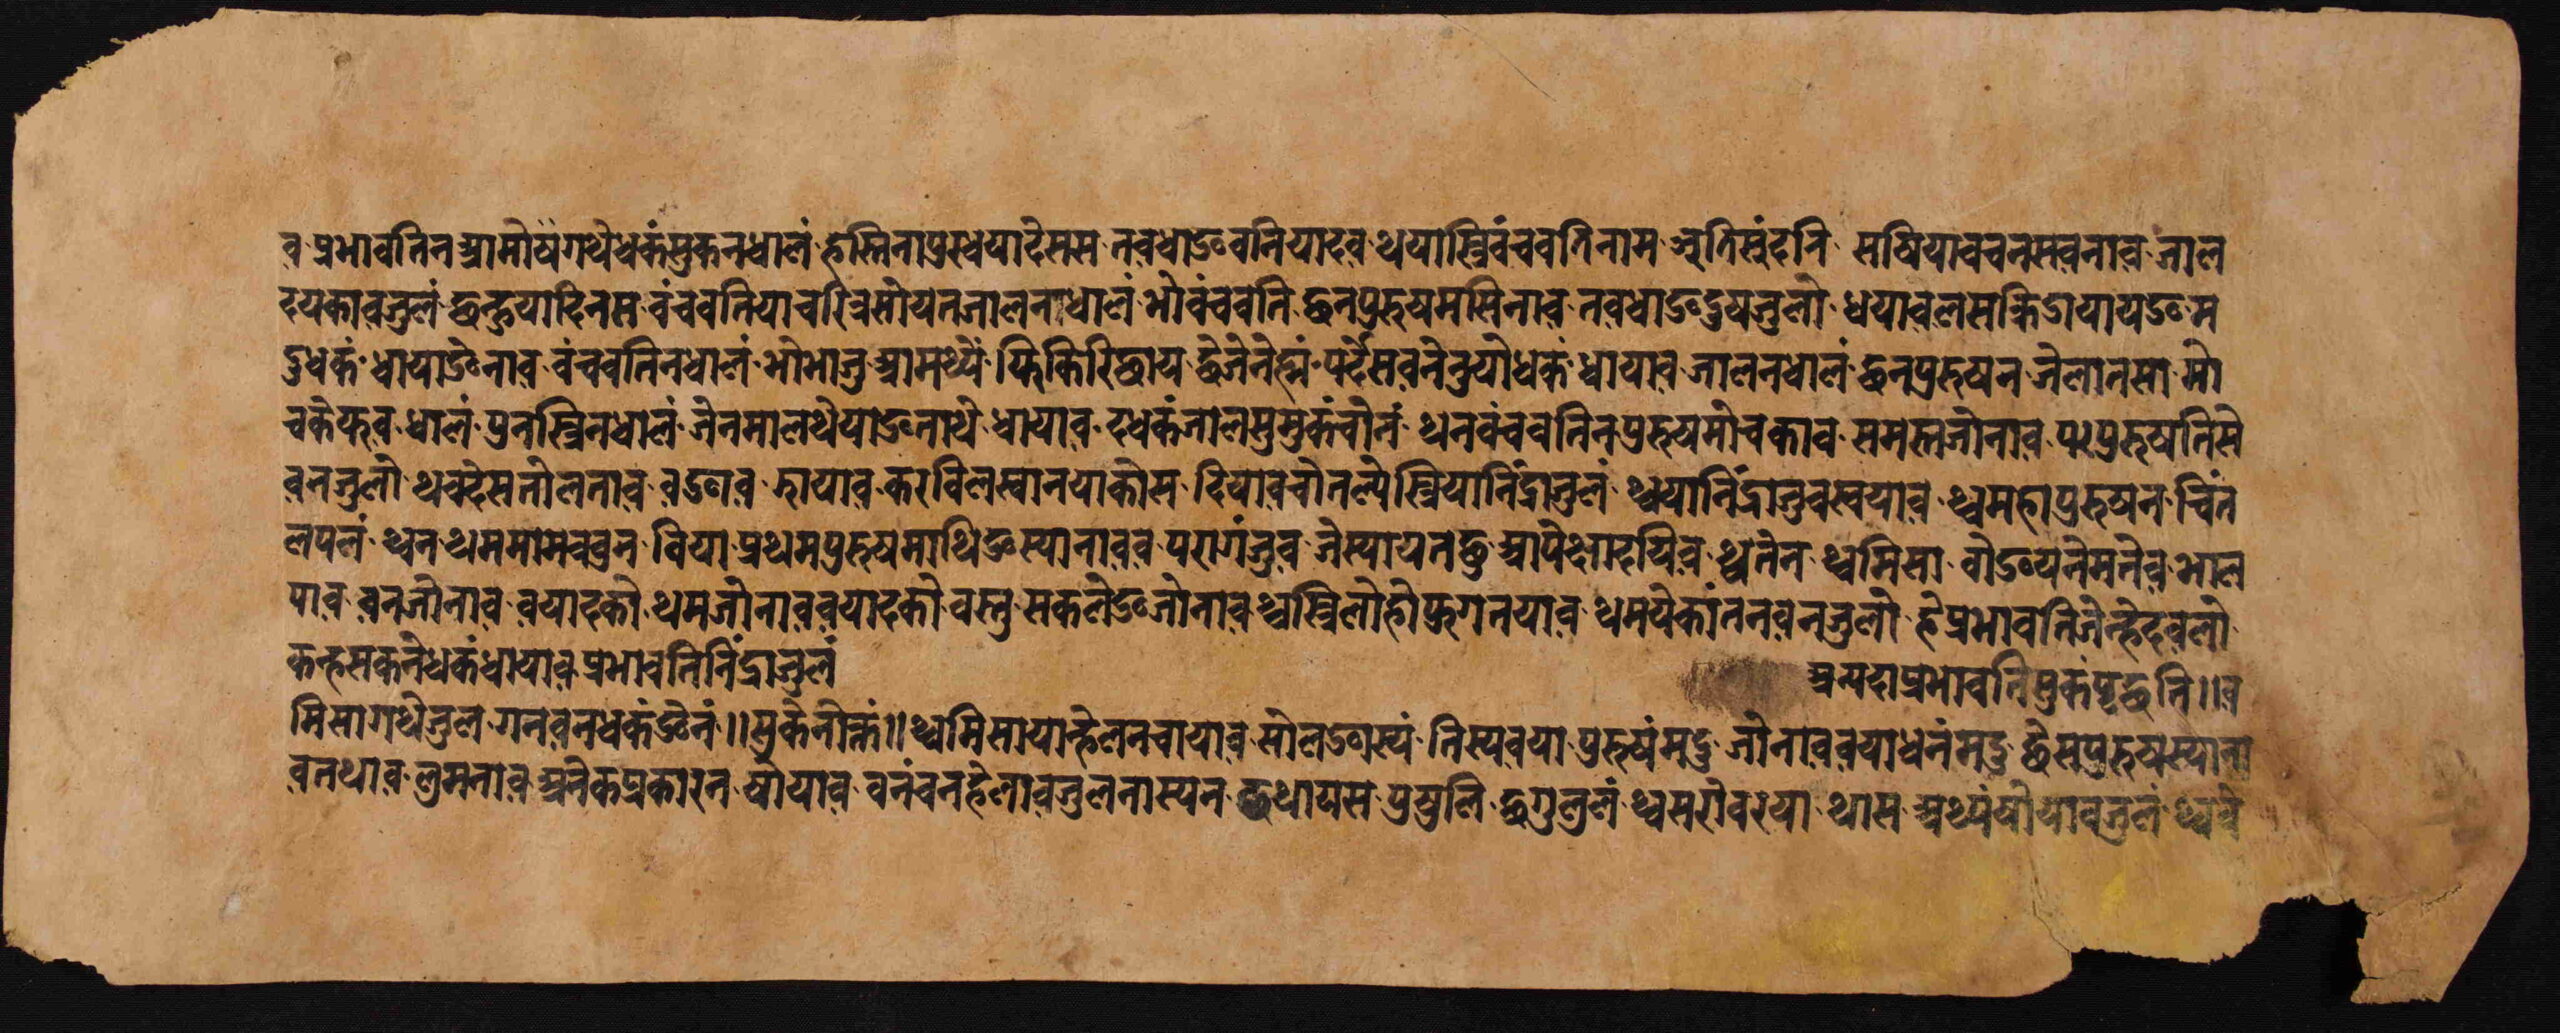 व प्रभावतिन आमोषगथेधकं सुकनधालं हस्तिनापुरधयादेसस तवधाङ वनियादव थयास्त्रिवंचवतिनाम अतिसुंदनि सषियावचनसवनाव जाल
दयकावजुलं छन्हुयादिनस वंचवतियाचरित्रसोयतजालनाधालं भोवंचवति छनपुरुषमसिनाव तवधाङदुषजुलो धयावलसक्रिडायायङम
डुधकं धायाङेनाव वंचवतिनधालं भोभाजु आमथ्यें क्रिरिछाय द्वेजेनेह्मं पर्देसवनेनुयोधकं धायाव जालनधालं छनपुरुषन जेलानसा मो
चकेफव धालं पुनस्त्रिनधालं जेनमालथेयाङनाथे धायाव दधकंजालसुमुकंचोनं थनवंचवतिनपुरुषमोचकाव समस्तजोनाव परपुरुषतिसे
वनजुलो थवदेसतोलताव वङाव कायाव करविलस्वानयाकोस दियावचोनले स्त्रियानिंद्राजुलं थ्वयानिंद्राजुवस्वयाव थ्वमहापुरुषन चिंत
लपलं थ्वन थममोमेववुन वियाप्रथमपुरुषमाथिङस्यानावव परागंजुव जेस्यायतछु आपेक्षादयिव थ्वतेन थ्वमिसा वोङयनेमतेव भाल
पाव वनजोनाव वयादको थमजोनाववयादको वस्तु सकलेङजोनाव थ्वस्त्रिलोहोफुगनयाव थमयेकांतनवनजुलो हेप्रभावतिजेन्हेदवलो
कन्हसकनेधकंधायाव प्रभावतिनिंद्राजुलं अन्यदाप्रभावतिसुकंपृछति॥व
मिसागथेजुल गनवनधकंङेनं॥सुकेनोक्तं॥थ्वमिसायान्हेलनचायाव सोलङास्यं तिस्यवया पुरुषंमदु जोनाववयाधनंमदु छेसपुरुषस्याना
वतथाव लुमनाव अनेकप्रकारन षोयाव वनंवनहेलावजुलनास्यन छथायस पुषुलि छगुलुलं थ्वसरोवरया थास अथ्यंषोयावजुलं थ्ववे